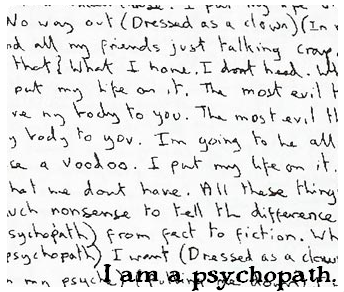 No way out (Dressed as a clown) (In
nd all my friends just talking crap.
that} What I hone. I dont head. Wh
put my life on it. The most evil t
ve my body to you. The most evil th
y body to you. Im going to be all
se a voodoo. I put my life on it.
hat we dont have. All these thing
uch nonsense to tell the difference
sychopath) from fact to fiction. Wh
psychopath) I want (Dressed as a clow
n my psych
I am a psychopath.